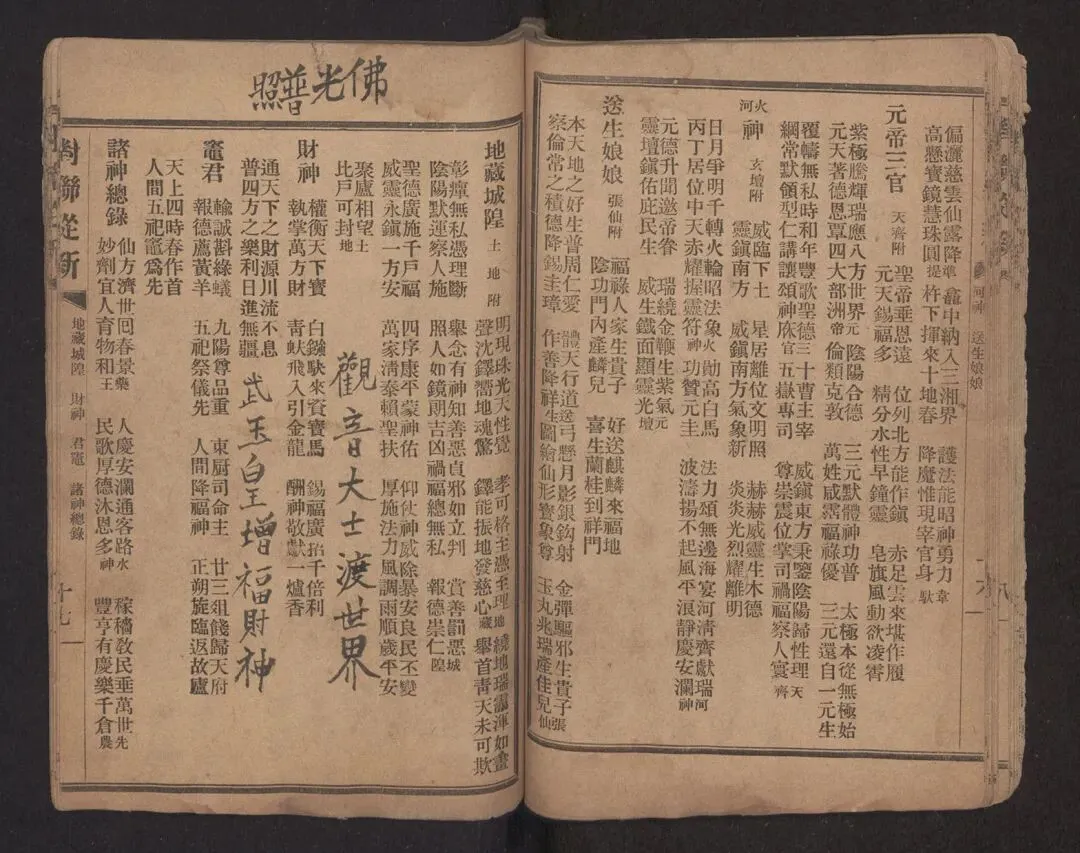 偏灑慈雲仙露降準 龕中納入三湘界 護法能昭神勇力韋
高懸寶鏡慧珠圓提 杵下揮來十地春 降魔惟現宰官身馱
元帝三官 天齊附 聖帝垂恩遠 位列北方能作鎮 赤足雲來堪作履
元天錫福多 精分水性早鐘靈 皂旗風動欲凌霄
紫極騰輝瑞應八方世界元 陰陽合德 三元默體神功普 太極本從無極始
元天著德恩覃四大部洲帝 倫類克敦 萬姓咸霑福祿優 三元還自一元生
覆幬無私時和年豐歌聖德三 十曹主宰 威鎮東方秉鑒陰陽歸性理天
綱常默領型仁講讓頌神庥官 五嶽專司 尊崇震位掌司禍福察人寰齊
火河神 玄壇附 威臨下土 星居離位文明照 赫赫威靈生木德
靈鎮南方 威鎮南方氣象新 炎炎光烈耀離明
日月爭明千轉火輪昭法象火 勛高白馬 法力頌無邊海宴河清齊獻瑞河
丙丁居位中天赤耀握靈符神 功贊元圭 波濤揚不起風平浪靜慶安瀾神
元德升聞邀帝眷 瑞繞金鞭生紫氣元
靈壇鎮佑庇民生 威生鐵面顯靈光壇
送生娘娘 張仙附 福祿人家生貴子 好送麒麟來福地
陰功門內產麟兒 喜生蘭桂到祥門
本天地之好生普周仁愛 體天行道送 弓懸月影銀鈎射 金彈驅邪生貴子張
察倫常之積德降錫圭璋 作善降祥生 圖繪仙形寶象尊 玉丸兆瑞產佳兒仙
十八
佛光普照
地藏城隍 土地附 明現珠光天性覺 孝可格主憑至理地 繞地瑞靄渾如畫
聲沈鐸嚮地魂驚 鐸能振地發慈心藏 舉首靑天未可欺
彰癉無私憑理斷 舉念有神知善惡 貞邪如立判 賞善罰惡城
陰陽默運察人施 照人如鏡朗吉凶 禍福總無私 報德崇仁隍
聖德廣施千戶福 四序康平蒙神佑 仰仗神威除暴安良民丕變
威靈永鎮一方安 萬家清泰賴聖扶 厚施法力風調雨順歲平安
聚廬相望土
比戶可封地
觀音大士渡世界
財神 權衡天下寶 白鏹馱來資寶馬 錫福廣招千倍利
執掌萬方財 青蚨飛入引金龍 酬神敬獻一爐香
通天下之財源川流不息
普四方之樂利日進無疆
武玉皇增福財神
竈君 輸誠斟綠蟻 九陽尊品重 東厨司命主 廿三俎餞歸天府
報德薦黃羊 五祀祭儀先 人間降福神 正朔旋臨返故廬
天上四時春作首
人間五祀竈為先
諸神總錄 仙方濟世回春景藥 人慶安瀾通客路水 稼穡敎民垂萬世先
妙劑宜人育物和王 民歌厚德沐恩多神 豐亨有慶樂千倉農
對聯從新
地藏城隍 財神 君竈 諸神總錄
十七
河神 送生娘娘